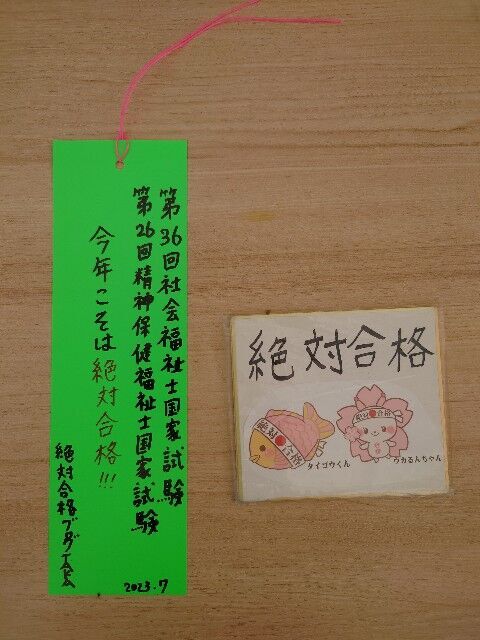 第36回社会福祉士国家試験
第26回精神保健福祉士国家試験
今年こそは絶対合格!!!
絶対合格ブログTAKA
2023.7
絶対合格
絶対合格
絶対合格
タイゴウくん
ウカるんちゃん